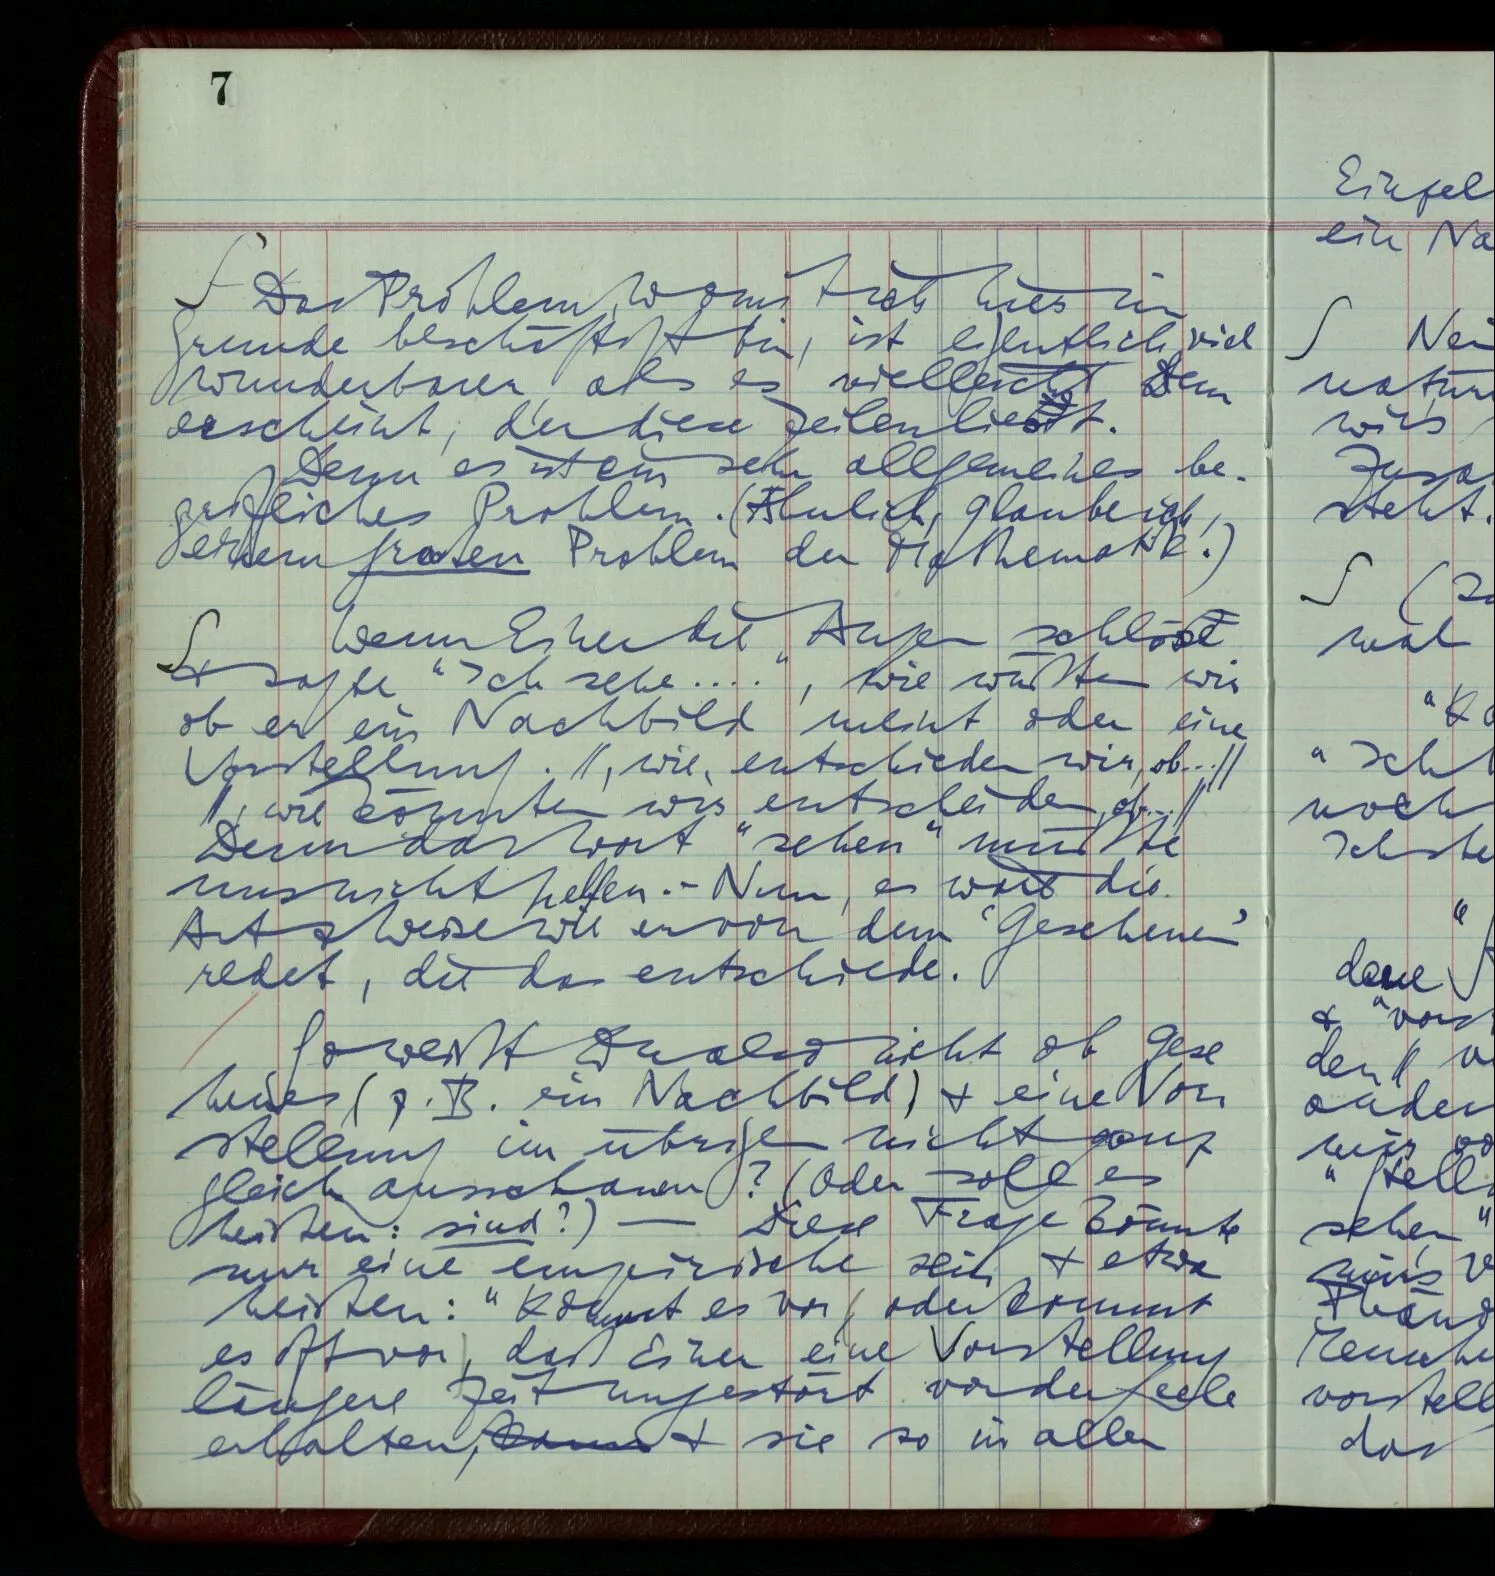 7
∫ Das Problem, womit ich hier im
Grunde beschäftigt bin, ist eigentlich viel
wunderbarer, als es vielleicht Dem
erscheint, der diese Zeilen liest.
Denn es ist ein sehr allgemeines be-
griffliches Problem. (Ähnlich, glaube ich,
einem großen Problem der Mathematik.)
∫ Wenn Einer die Augen schlöße
& sagte "Ich sehe ....", wie wüßten wir
ob er ein Nachbild meint oder eine
Vorstellung. //, wie entschieden wir, ob...//
//, wie könnten wir entscheiden, ob...//
Denn das Wort "sehen" müßte
uns nicht helfen. – Nun, es wäre die
Art & Weise wie er von dem 'Gesehenen'
redet, die das entschiede.
So weißt Du also nicht ob Gese
henes (z.B. ein Nachbild) & eine Vor
stellung im übrigen nicht ganz
gleich ausschauen? (Oder soll es
heißen: sind?) — Diese Frage könnte
nur eine empirische sein, & etwa
heißen: "Kommt es vor, oder kommt
es oft vor, daß Einer eine Vorstellung
längere Zeit ungestört vor der Seele
erhalten, kann & sie so in allen
ein Na
∫ Nei
∫
steht.
noch
"
dene
den //
sehen"
vorstell
das